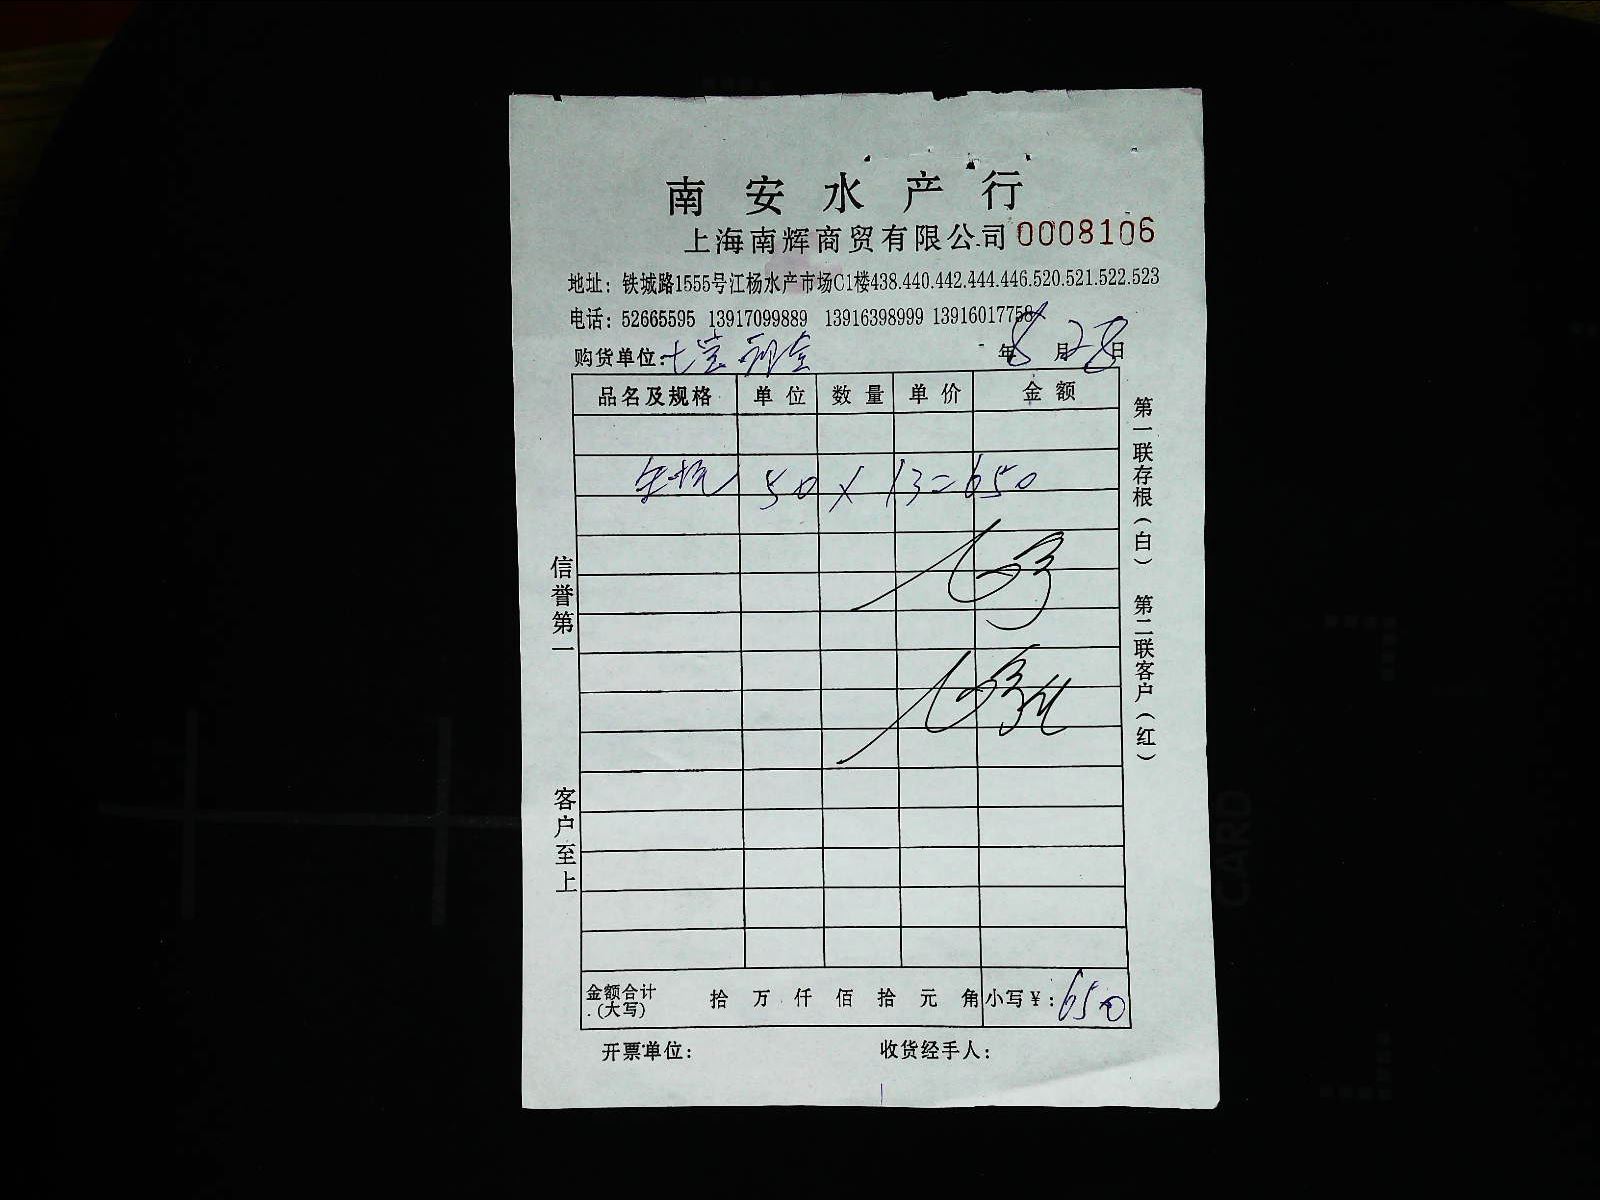 南安水产行
上海南辉商贸有限公司 0008106
地址：铁城路1555号江杨水产市场C1楼438.440.442.444.446.520.521.522.523
电话：52665595 13917099889 13916398999 13916017758
购货单位：七宝 年8月28日
品名及规格 单位 数量 单价 金额
50 X 13=650
信誉第一
客户至上
第一联存根（白） 第二联客户（红）
金额合计(大写) 拾 万 仟 佰 拾 元 角 小写￥：650
开票单位： 收货经手人：
CARD